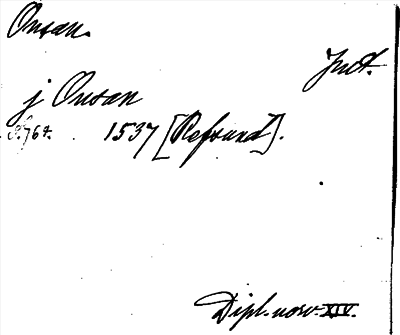 Onsan.
Jnt.
j Onsan
S. 764. 1537 [Refsund].
Dipl. norv. XIV.